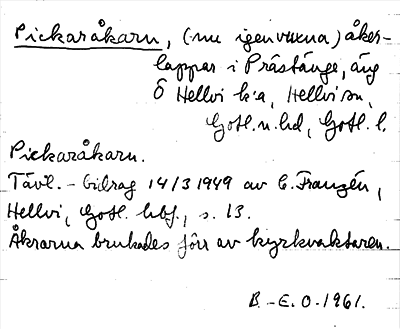 Pickaråkarn, (nu igenvuxna) åker-
lappar i Prästänge, äng
Ö Hellvi k:a, Hellvi sn,
Gotl. n. hd, Gotl. l.
Pickaråkarn.
Tävl.-bidrag 14/3 1949 av C. Franzén,
Hellvi, Gotl. hbf., s. 13.
Åkrarna brukades förr av kyrkvaktaren.
B.-E. O. 1961.